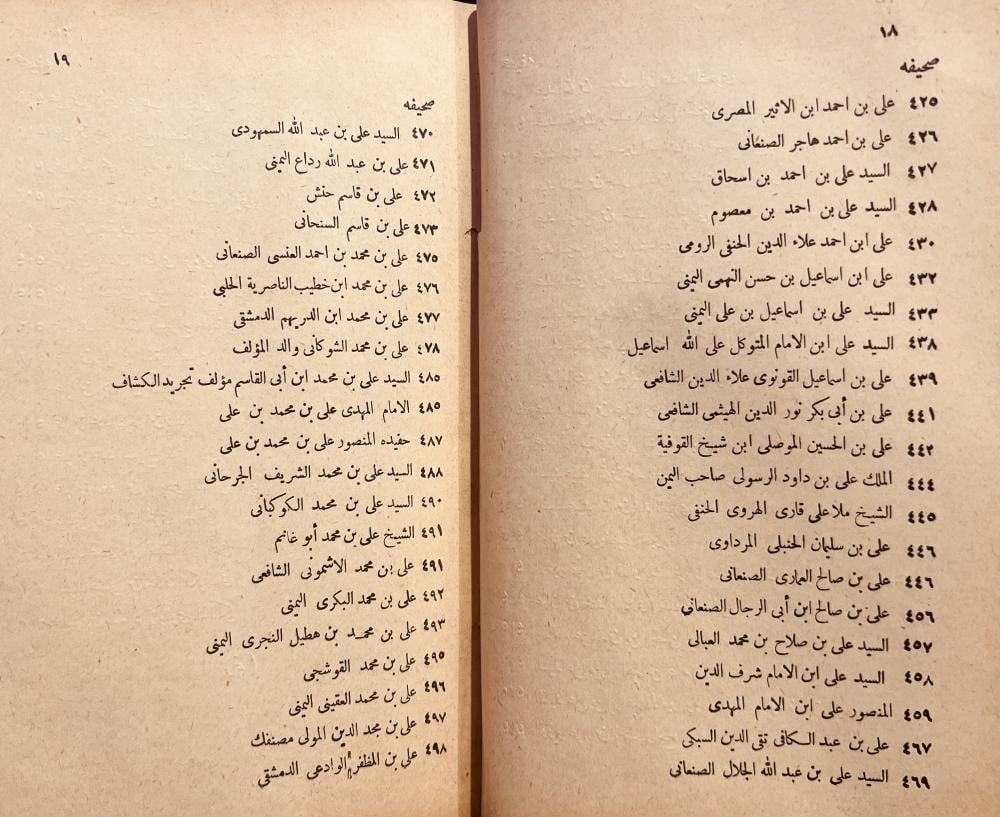 ١٨
صحيفه
٤٢٥ على بن احمد ابن الاثير المصرى
٤٢٦ على بن احمد هاجر الصنعانى
٤٢٧ السيد على بن احمد بن اسحاق
٤٢٨ السيد على بن احمد بن معصوم
٤٣٠ على ابن احمد علاء الدين الحنفى الرومى
٤٣٢ على ابن اسماعيل بن حسن النهمى اليمنى
٤٣٣ السيد على بن اسماعيل بن على اليمنى
٤٣٨ السيد على ابن الامام المتوكل على الله اسماعيل
٤٣٩ على بن اسماعيل القونوى علاء الدين الشافعى
٤٤١ على بن أبى بكر نور الدين الهيثمى الشافعى
٤٤٢ على بن الحسين الموصلى ابن شيخ القوفية
٤٤٤ الملك على بن داود الرسولى صاحب اليمن
٤٤٥ الشيخ ملا على قارى الهروى الحنفى
٤٤٦ على بن سليمان الحنبلى المرداوى
٤٤٦ على بن صالح العمارى الصنعانى
٤٥٦ على بن صالح ابن أبى الرجال الصنعانى
٤٥٧ السيد على بن صلاح بن محمد العبالى
٤٥٨ السيد على ابن الامام شرف الدين
٤٥٩ المنصور على ابن الامام المهدى
٤٦٧ على بن عبد الكافى تقى الدين السبكى
٤٦٩ السيد على بن عبد الله الجلال الصنعانى
١٩
صحيفه
٤٧٠ السيد على بن عبد الله السمهودى
٤٧١ على بن عبد الله رداع اليمنى
٤٧٢ على بن قاسم حنش
٤٧٣ على بن قاسم السنحانى
٤٧٥ على بن محمد بن احمد العنسى الصنعانى
٤٧٦ على بن محمد ابن خطيب الناصرية الحلبى
٤٧٧ على بن محمد ابن الدريهم الدمشقى
٤٧٨ على بن محمد الشوكانى والد المؤلف
٤٨٥ السيد على بن محمد ابن أبى القاسم مؤلف تجريد الكشاف
٤٨٥ الامام المهدى على بن محمد بن على
٤٨٧ حفيده المنصور على بن محمد بن على
٤٨٨ السيد على بن محمد الشريف الجرحانى
٤٩٠ السيد على بن محمد الكوكبانى
٤٩١ الشيخ على بن محمد أبو غانم
٤٩١ على بن محمد الاشمونى الشافعى
٤٩٢ على بن محمد البكرى اليمنى
٤٩٣ على بن محمد بن هطيل النجرى اليمنى
٤٩٥ على بن محمد القوشجى
٤٩٦ على بن محمد العقينى اليمنى
٤٩٧ على بن مجد الدين المولى مصنفك
٤٩٨ على بن المظفر الوادعى الدمشقى